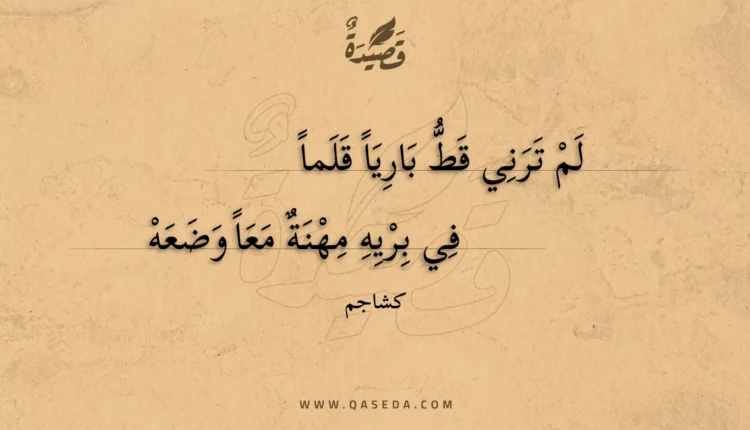 قَصِيْدَةٌ
لَمْ تَرَنِي قَطُّ بَارِيَاً قَلَماً
فِي بِرْيِهِ مِهْنَةٌ مَعَاً وَضَعَهْ
كشاجم
WWW.QASEDA.COM